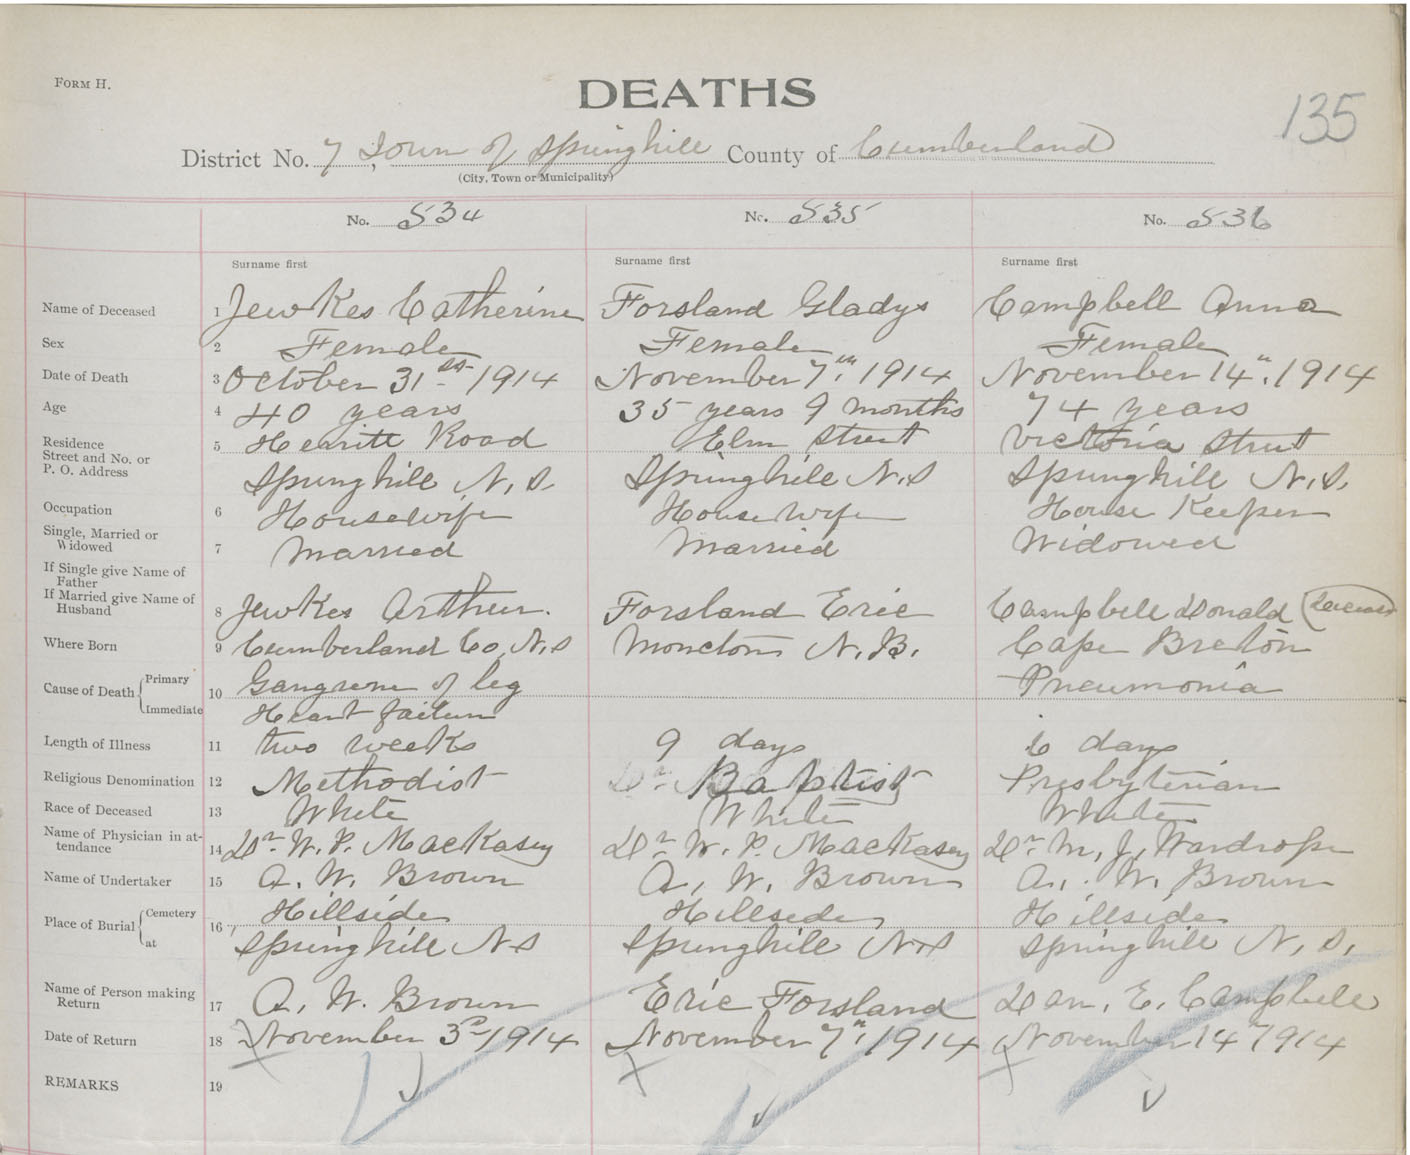 FORM H.
DEATHS
135
District No. 7, Town of Springhill County of Cumberland
(City, Town or Municipality)
No. 534 No. 535 No. 536
Surname first Surname first Surname first
Name of Deceased 1 Jewkes Catherine Forsland Gladys Campbell Anna
Sex 2 Female Female Female
Date of Death 3 October 31st 1914 November 7th, 1914 November 14", 1914
Age 4 40 years 35 years 9 months 74 years
Residence Street and No. or P. O. Address 5 Herritt Road Elm Street Victoria Street
Springhill N.S. Springhill N.S Springhill N.S.
Occupation 6 Housewife House Wife House Keeper
Single, Married or Widowed 7 Married Married Widowed
If Single give Name of Father
If Married give Name of Husband 8 Jewkes Arthur. Forsland Eric Campbell Donald (Deceased)
Where Born 9 Cumberland Co, N.S Moncton N.B. Cape Breton
Cause of Death { Primary 10 Gangrene of leg Pneumonia
Immediate Heart failure
Length of Illness 11 two weeks 9 days 6 days
Religious Denomination 12 Methodist Baptist Presbyterian
Race of Deceased 13 White White White
Name of Physician in attendance 14 Dr. W. P. MacKasey Dr. W. P. MacKasey Dr. M. J. Wardrope
Name of Undertaker 15 A. W. Brown A. W. Brown A. W. Brown
Place of Burial { Cemetery 16 Hillside Hillside Hillside
at Springhill N.S Springhill N.S Springhill N.S.
Name of Person making Return 17 A. W. Brown Eric Forsland Dan. E. Campbell
Date of Return 18 November 3rd 1914 November 7", 1914 November 14" 1914
REMARKS 19